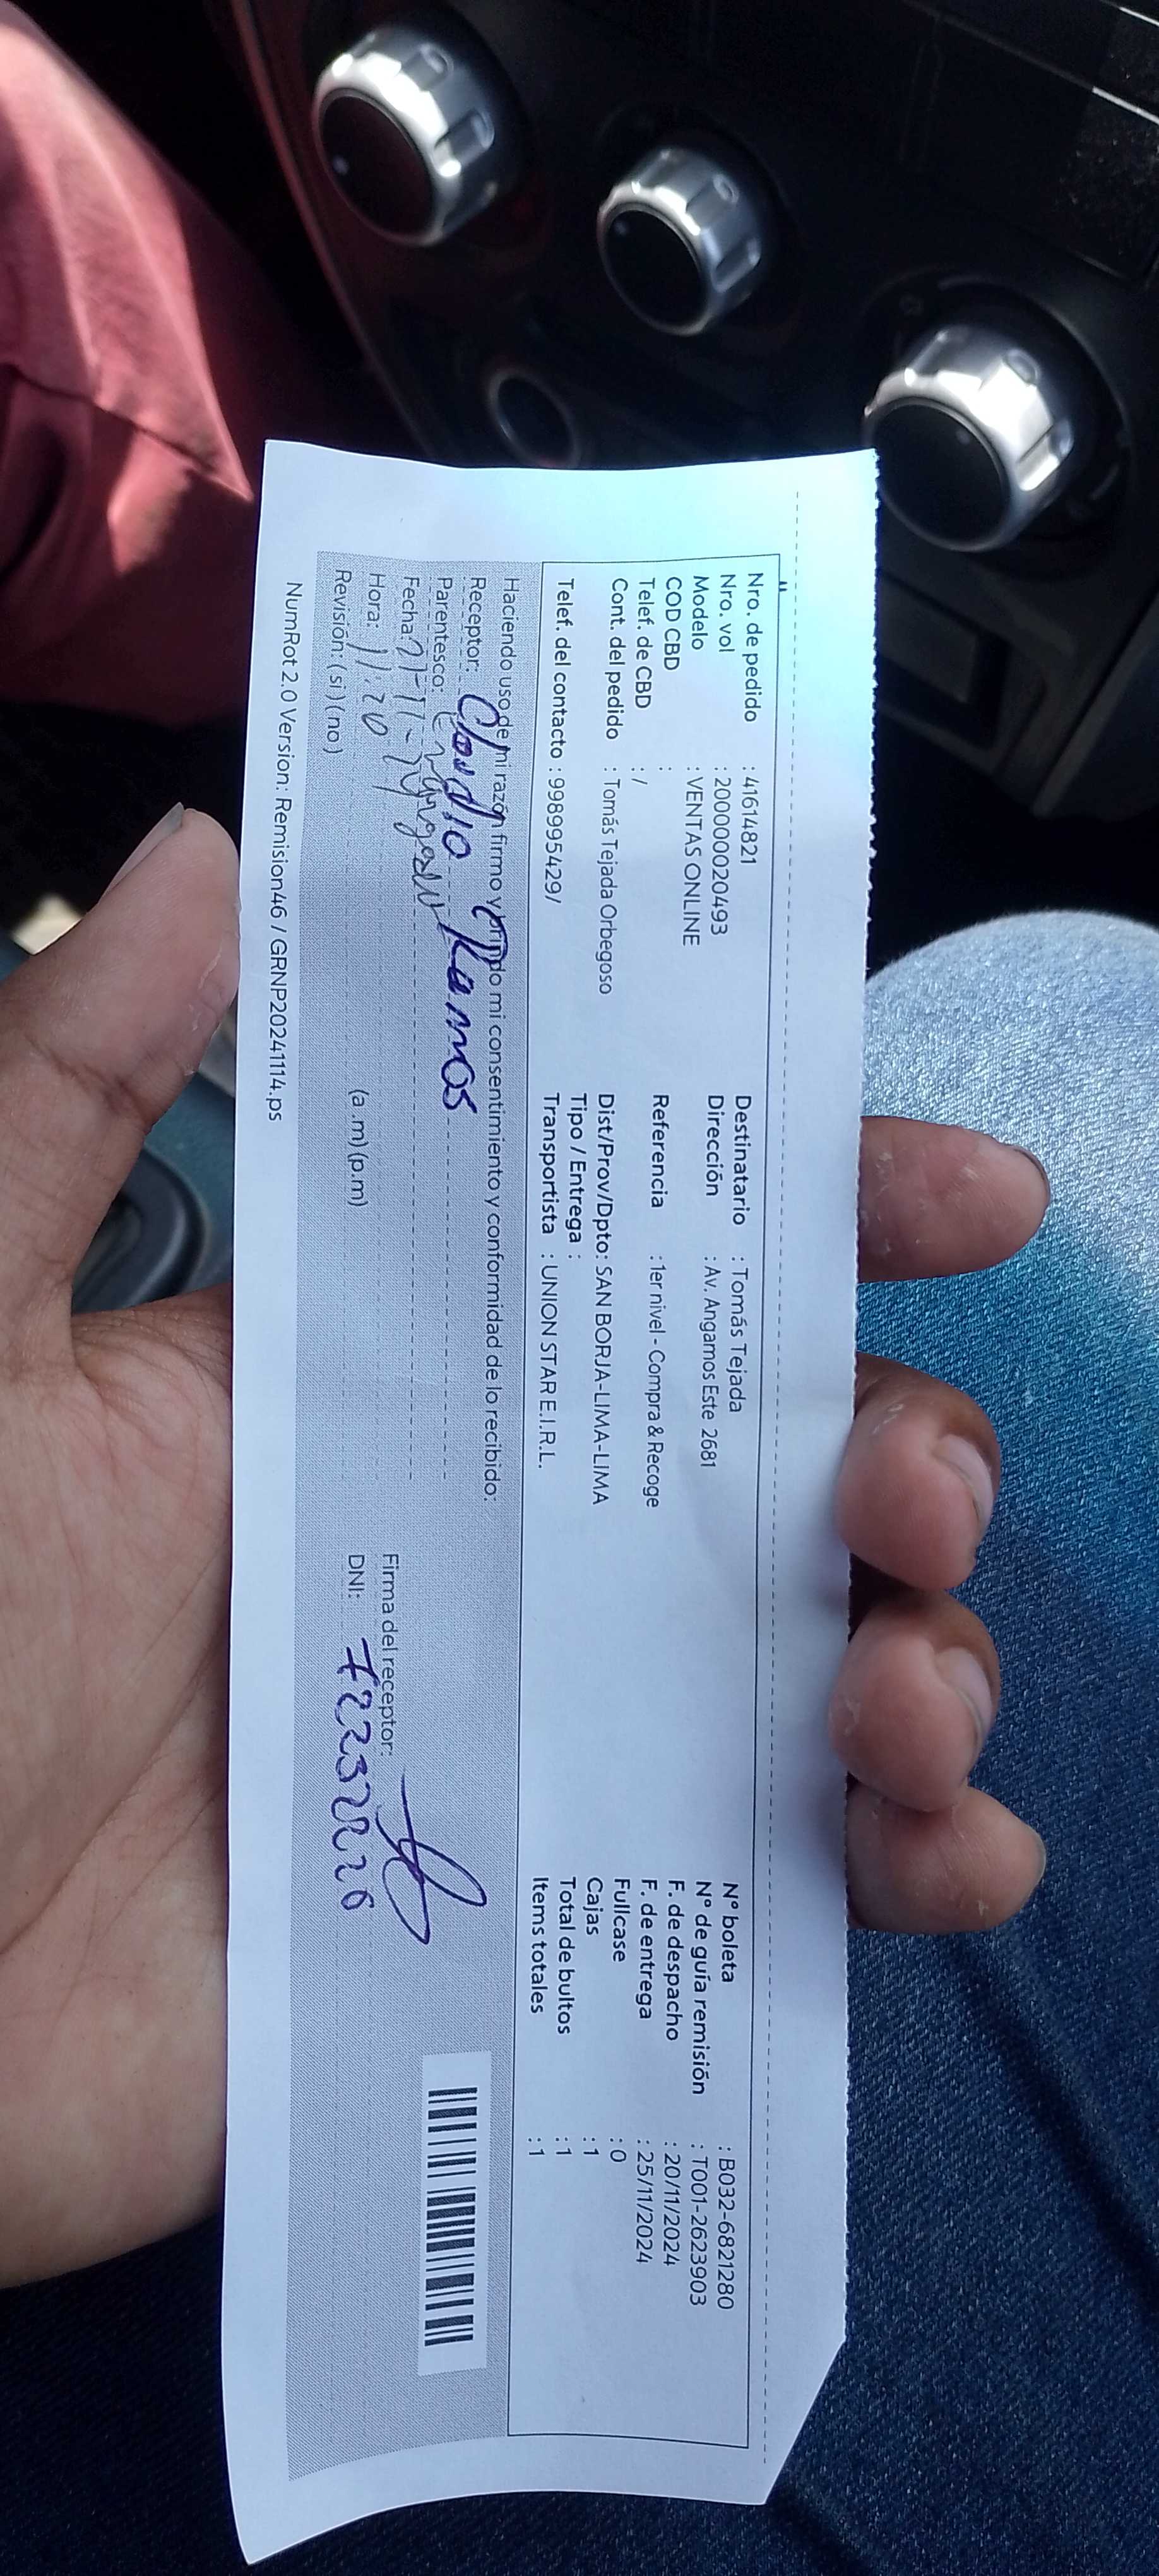 Nro. de pedido : 41614821
Nro. vol : 200000020493
Modelo : VENTAS ONLINE
COD CBD :
Telef. de CBD : /
Cont. del pedido : Tomás Tejada Orbegoso
Telef. del contacto : 998995429/
Destinatario : Tomás Tejada
Dirección : Av. Angamos Este 2681
Referencia : 1er nivel - Compra & Recoge
Dist/Prov/Dpto: SAN BORJA-LIMA-LIMA
Tipo / Entrega :
Transportista : UNION STAR E.I.R.L.
N° boleta : B032-6821280
N° de guía remisión : T001-2623903
F. de despacho : 20/11/2024
F. de entrega : 25/11/2024
Fullcase : 0
Cajas : 1
Total de bultos : 1
Items totales : 1
Haciendo uso de mi razón firmo y brindo mi consentimiento y conformidad de lo recibido:
Receptor: Claudio Ramos
Parentesco:
Fecha: 21-11-24
Hora: 11:20 (a.m) (p.m)
Revisión: (si) (no)
Firma del receptor:
DNI:
NumRot 2.0 Version: Remision46 / GRNP20241114.ps